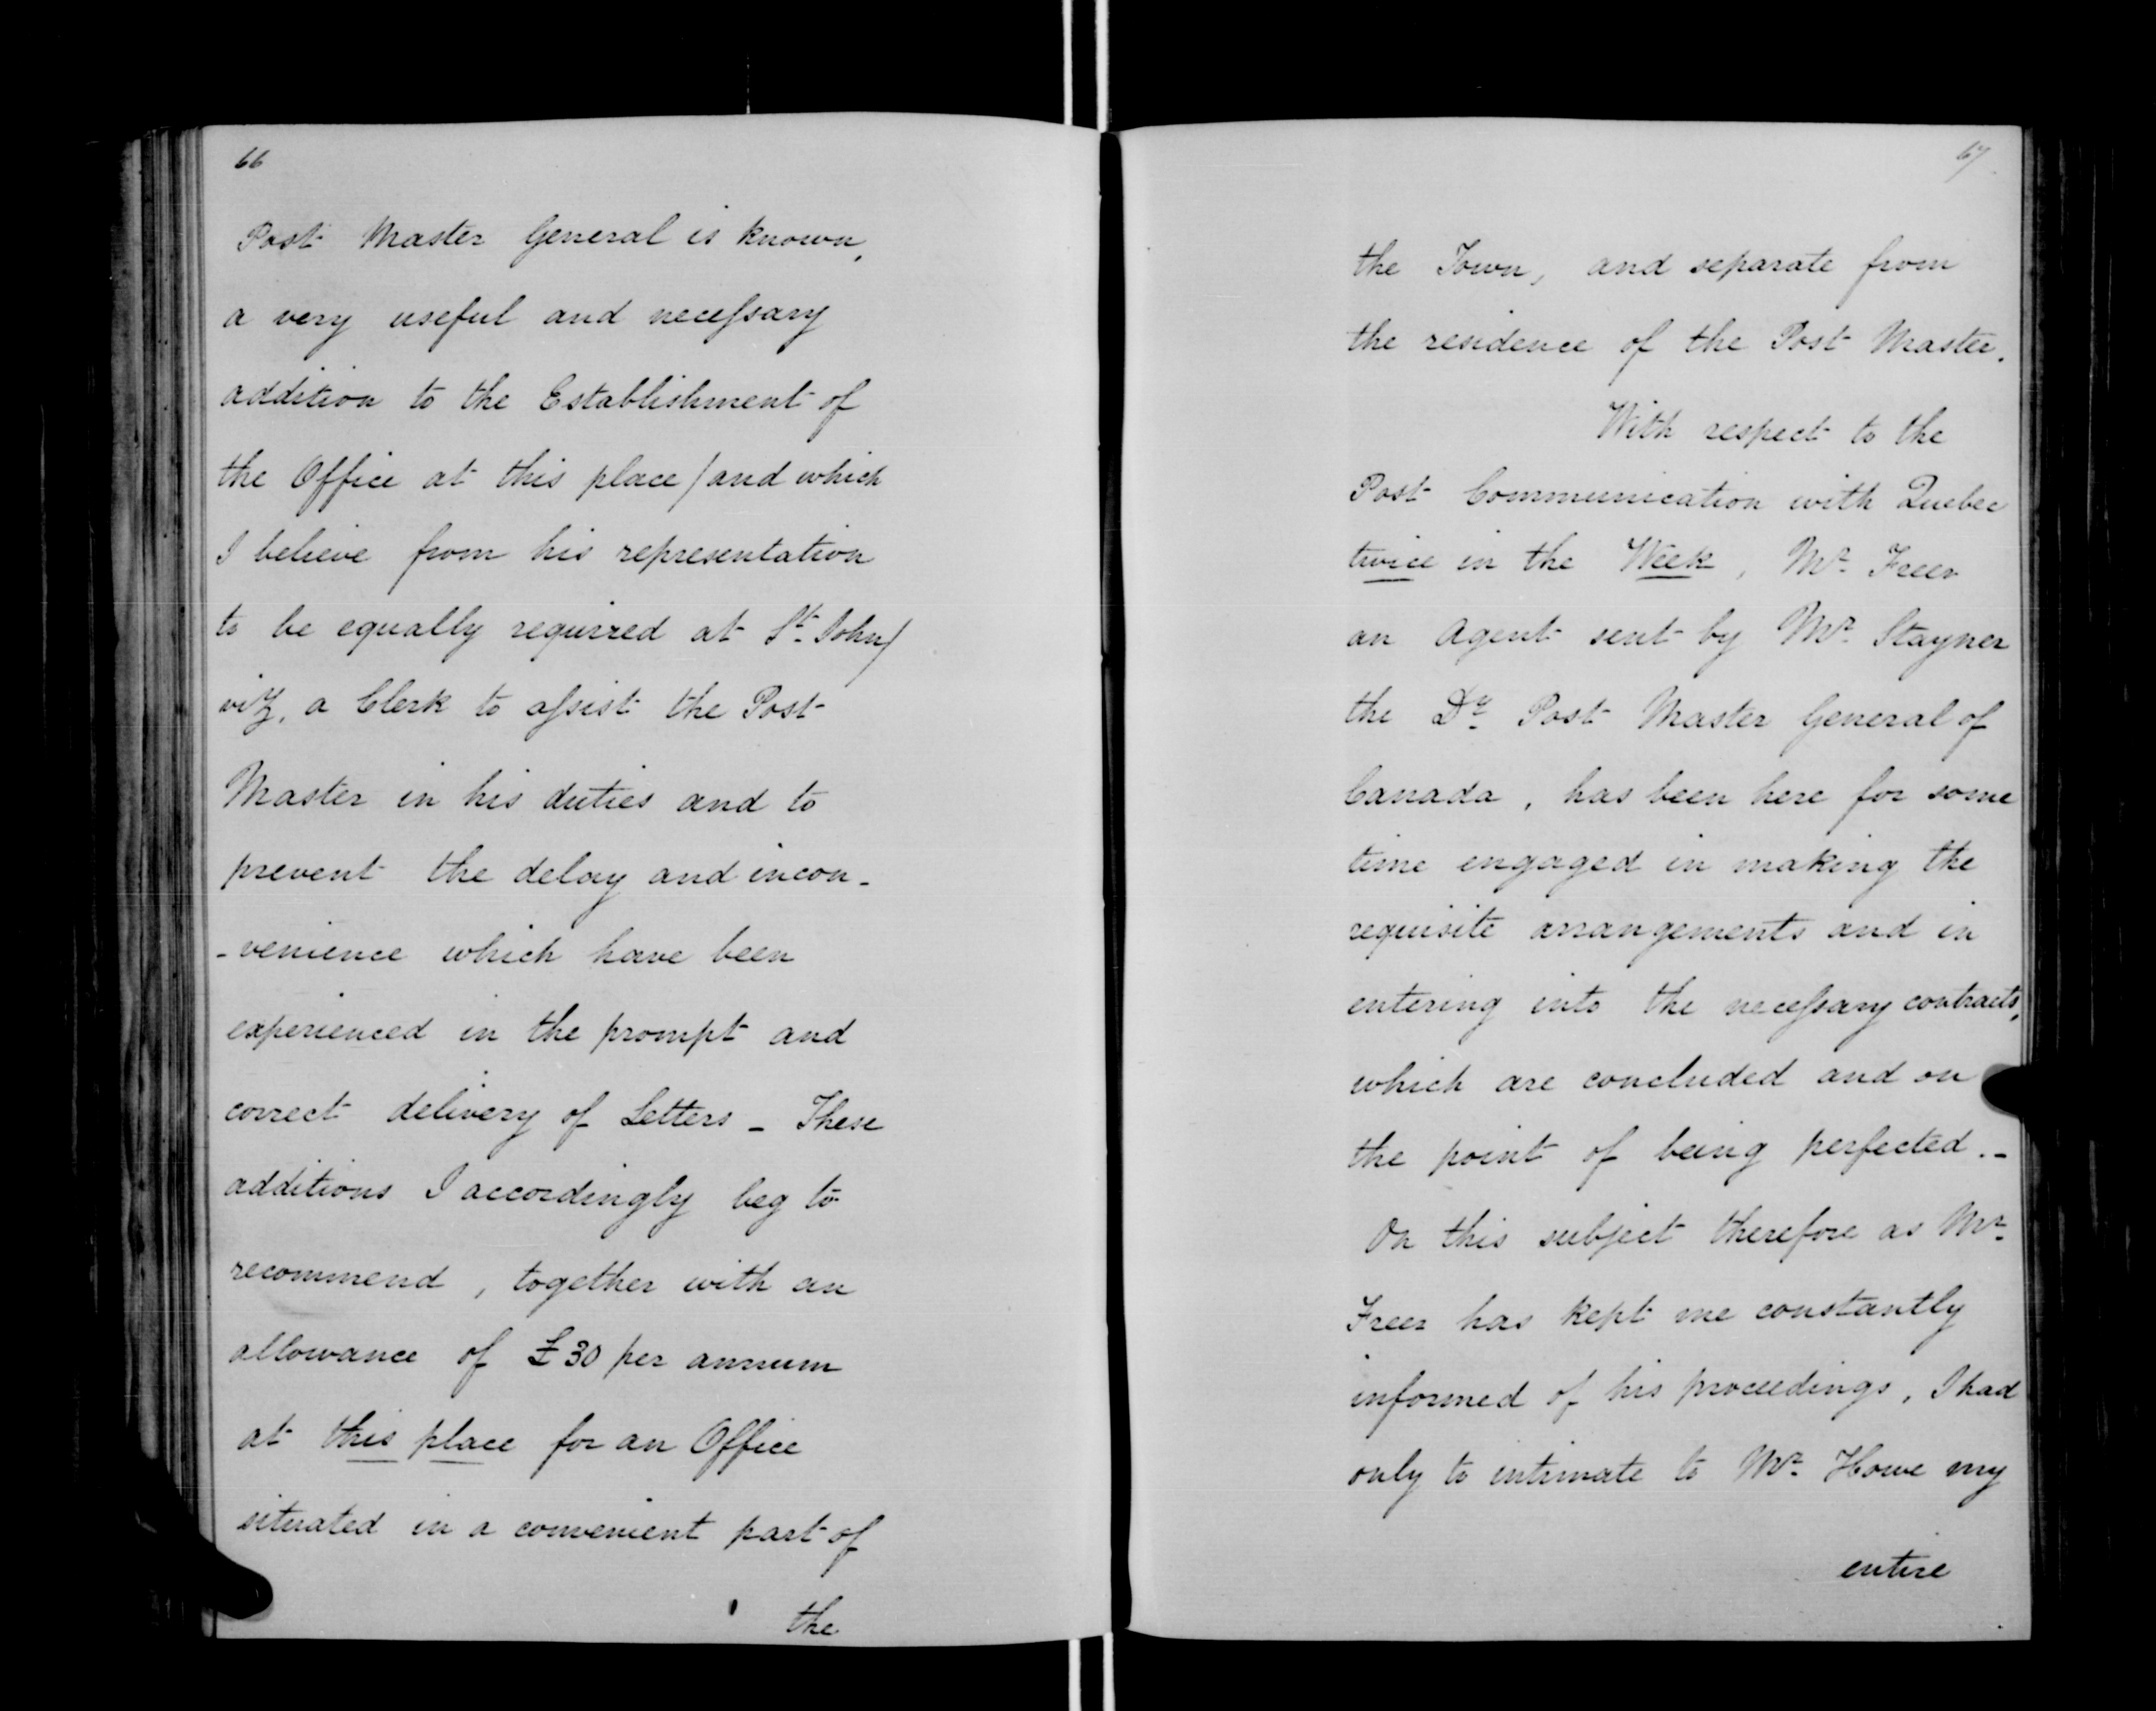 66
Post Master General is known,
a very useful and necessary
addition to the Establishment of
the Office at this place / and which
I believe from his representation
to be equally required at St. John /
viz, a Clerk to assist the Post
Master in his duties and to
prevent the delay and incon-
-venience which have been
experienced in the prompt and
correct delivery of Letters _ These
additions I accordingly beg to
recommend, together with an
allowance of £30 per annum
at this place for an Office
situated in a convenient part of
the
67
the Town, and separate from
the residence of the Post Master.
With respect to the
Post Communication with Quebec
twice in the Week, Mr. Freer
an Agent sent by Mr. Stayner
the Dy. Post Master General of
Canada, has been here for some
time engaged in making the
requisite arrangements and in
entering into the necessary contracts,
which are concluded and on
the point of being perfected._
On this subject therefore as Mr.
Freer has kept me constantly
informed of his proceedings, I had
only to intimate to Mr. Howe my
entire